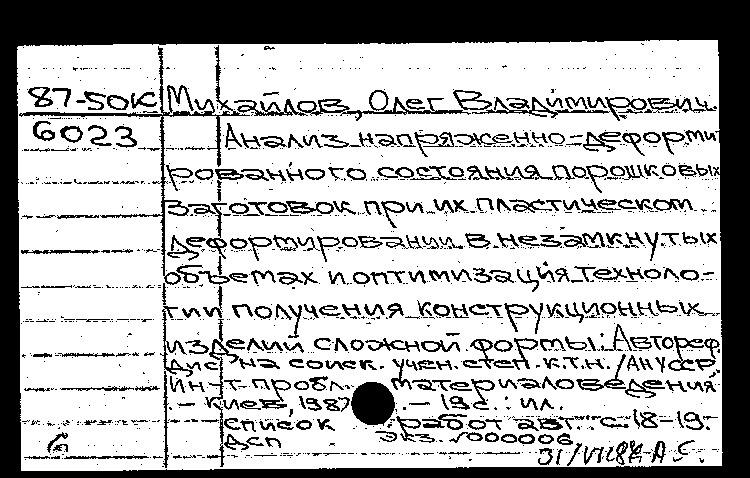 87-50К Михайлов, Олег Владимирович.
6023 Анализ напряженно-деформи
рованного состояния порошковых
заготовок при их пластическом
деформировании в незамкнутых
объемах и оптимизация техноло-
гии получения конструкционных
изделий сложной формы: Автореф.
дис на соиск. учен. степ. к.т.н. / АН УССР,
Ин-т пробл. материаловедения
. - Киев, 1987. - 19 с. : ил.
Список работ авт.: с. 18-19.
6 ДСП Экз. №000006
31/VII 87 А С.